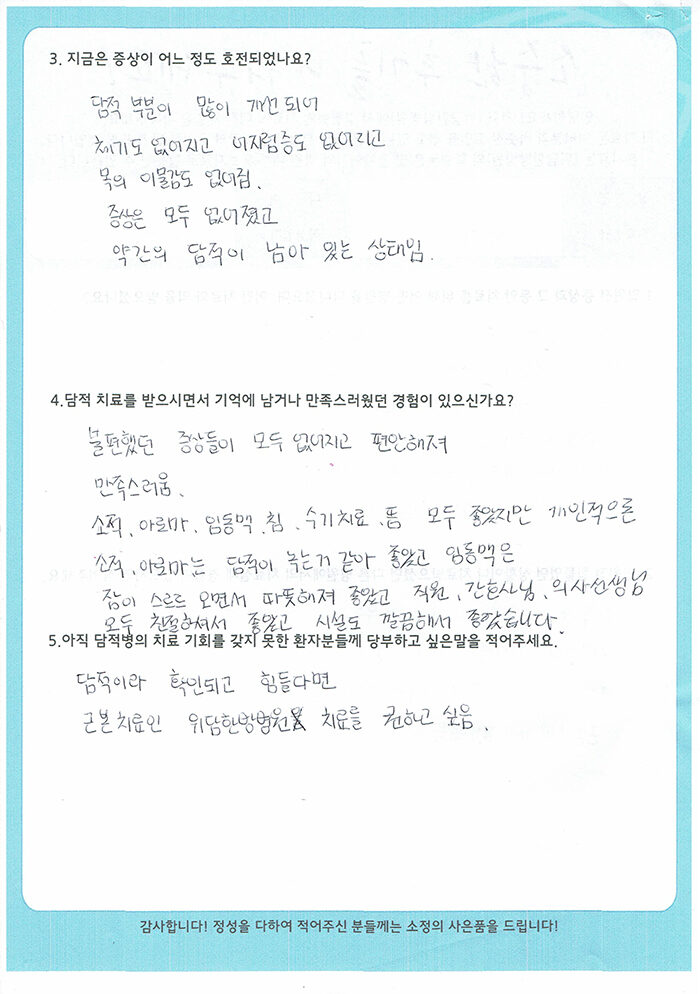 3. 지금은 증상이 어느 정도 호전되었나요?
담적 부분이 많이 개선되어
체기도 없어지고 어지럼증도 없어지고
목의 이물감도 없어짐.
증상은 모두 없어졌고
약간의 담적이 남아 있는 상태임.
4.담적 치료를 받으시면서 기억에 남거나 만족스러웠던 경험이 있으신가요?
불편했던 증상들이 모두 없어지고 편안해져
만족스러움.
소적, 아로마, 임동맥, 침, 수기치료, 뜸 모두 좋았지만 개인적으론
소적, 아로마는 담적이 녹는거 같아 좋았고 임동맥은
잠이 스르르 오면서 따뜻해져 좋았고 직원, 간호사님, 의사선생님
모두 친절하셔서 좋았고 시설도 깔끔해서 좋았습니다.
5.아직 담적병의 치료 기회를 갖지 못한 환자분들께 당부하고 싶은말을 적어주세요.
담적이라 확인되고 힘들다면
근본치료인 위담한방병원 치료를 권하고 싶음.
감사합니다! 정성을 다하여 적어주신 분들께는 소정의 사은품을 드립니다!